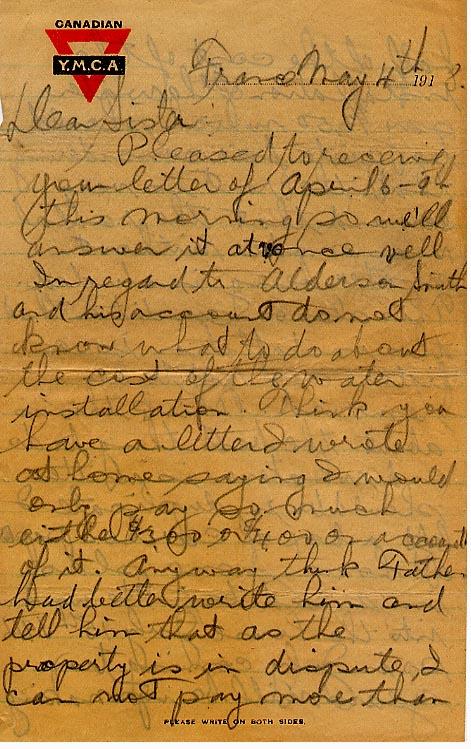 CANADIAN
Y.M.C.A.
France May 4th 1918.
Dear Sister
Pleased to receive
your letter of April 6-9-
this morning so will
answer it at once well
In regard to Alderson Smith
and his account do not
know what to do about
the cost of the water
installation. Think you
have a letter I wrote
at home saying I would
only pay so much
either $300 or $400 on account
of it. Anyway think Father
had better write him and
tell him that as the
property is in dispute, I
can not pay more than
PLEASE WRITE ON BOTH SIDES.